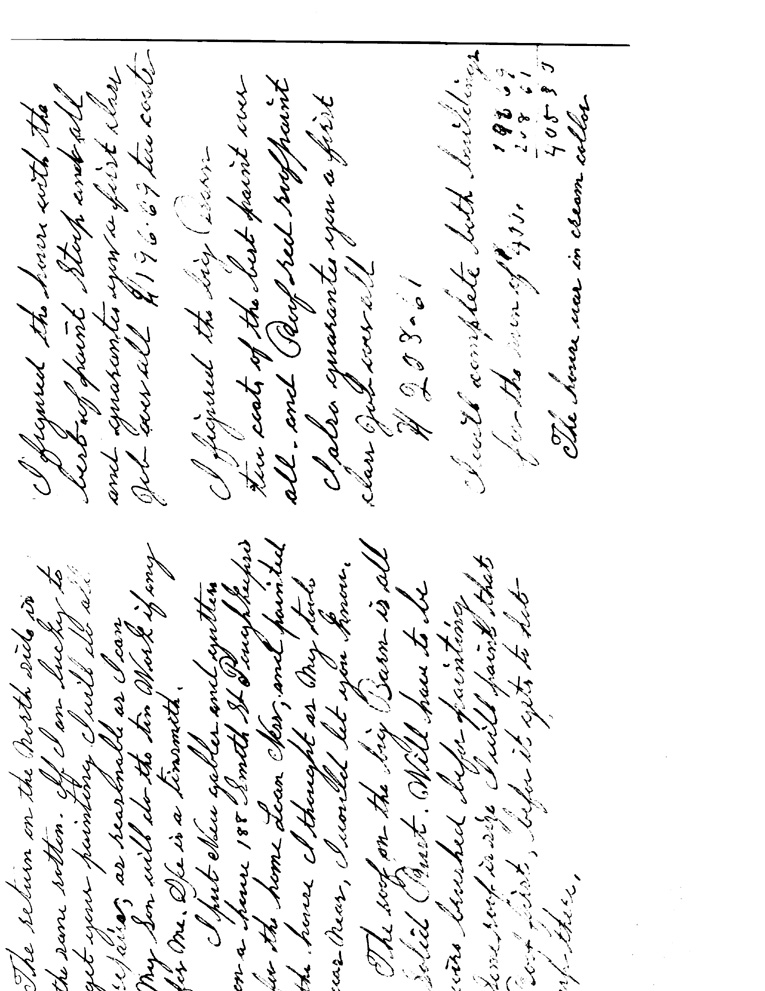 The return on the North side is
the same rotten. If I am lucky to
get your painting I will do all
repairs, as reasnable as I can
My son will do the tin Work if any
for Me. He is a tinsmith.
I put New gables and gutters
on a house 188 Smith St Poughkeepsie
for the home Loan Ness, and painted
the house I thought as My tools
was Near, I would let you know.
The roof on the big Barn is all
Solid Rust. Will have to be
wire brushed before painting
Some roof in size I will paint that
Roof first, before it gets to hot
up there,
I figured the house with the
best of paint Stoop and all
and guarantee you a first class
Job over all $196.69 two coats
I figured the big Barn
two coats of the best paint over
all. and Roof red roofpaint
I also guarantee you a first
class Job over all
$ 208-61
I will complete both buildings
for the sum of $400.
196 69
208 61
405 30
The house was in cream collor